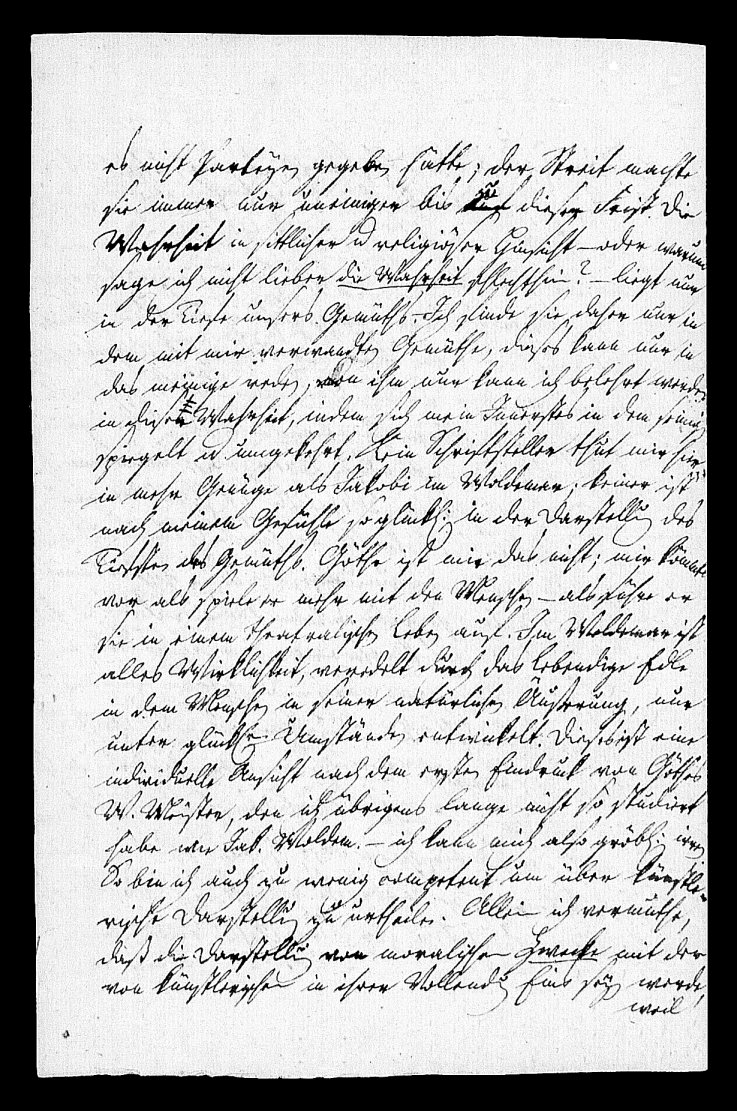 es nicht Partheyen gegeben hätte; der Streit machte
sie immer nur uneiniger bis zu dieser Frist. Die
Wahrheit in sittlicher u religiöser Hinsicht – oder warum
sage ich nicht lieber die Wahrheit schlechthin? – liegt nur
in der Tiefe unsers Gemüths. Ich finde sie daher nur in
dem mit mir verwandten Gemüthe, dieses kann nur in
das meinige reden, von ihm nur kann ich belehrt werden
in dieser Wahrheit, indem sich mein Innerstes in dem seinig
spiegelt u umgekehrt. Kein Schriftsteller thut mir hier
in mehr Genüge als Jakobi im Woldemar; keiner ist
nach meinem Gefühle so glückl: in der Darstellung des
Tiefsten des Gemüths. Göthe ist mir das nicht; mir kömmt
vor als spiele er mehr mit den Menschen – als führe er
sie in einem theatralischen Leben auf. Im Woldemar ist
alles Wirklichkeit, veredelt durch das lebendige Edle
in dem Menschen in seiner natürlichen Äußerung, nur
unter glücklichen Umständen entwickelt. Dieses ist eine
individuelle Ansicht nach dem ersten Eindruck von Göthes
W. Meister, den ich übrigens lange nicht so studiert
habe wie Jak. Woldem. – ich kann mich also gröbl: irren
So bin ich auch zu wenig competent um über künstle-
rische Darstellung zu urtheilen. Allein ich vermuthe,
daß die Darstellung von moralischen Zwecke mit der
von künstlerischen in ihrer Vollendung Eins seyn werde,
weil